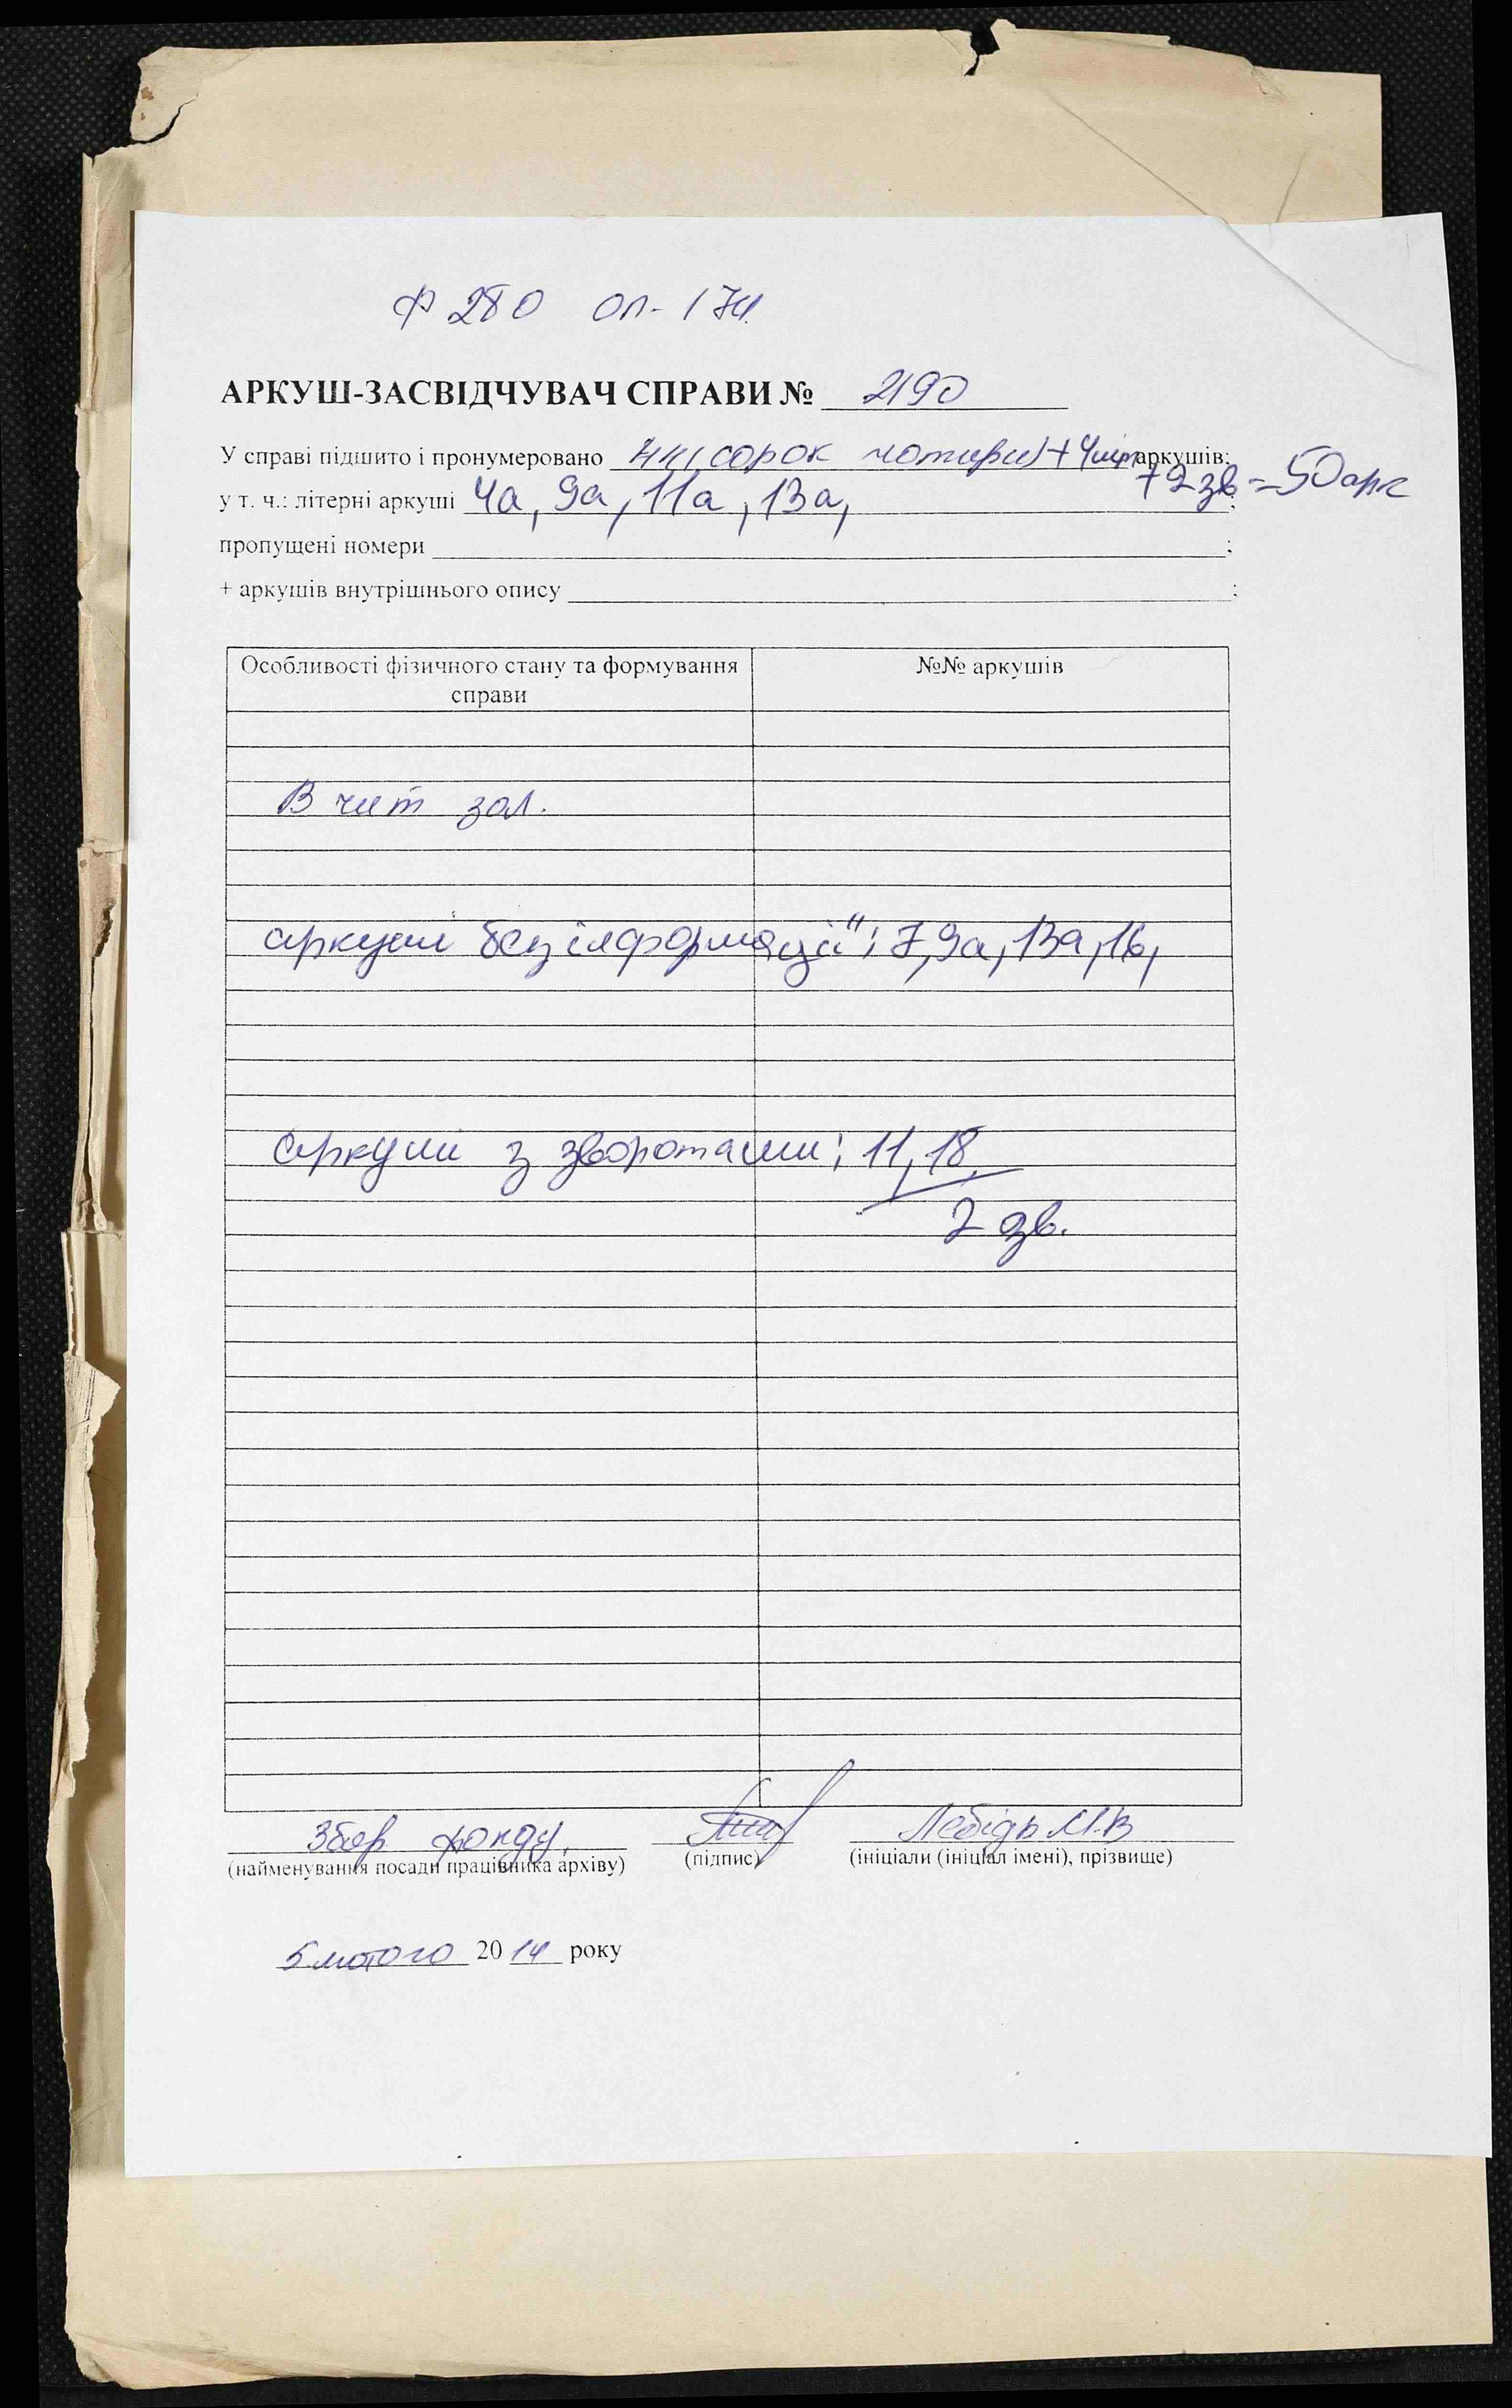 Ф 280 оп-174.
АРКУШ-ЗАСВІДЧУВАЧ СПРАВИ № 2190
У справі підшито і пронумеровано 44(сорок чотири)+4літ аркушів;
+2зв=50арк
у т. ч.: літерні аркуші 4а, 9а, 11а, 13а, ;
пропущені номери ;
+ аркушів внутрішнього опису ;
Особливості фізичного стану та формування справи
№№ аркушів
В чит зал.
аркуші без інформації": 7, 9а, 13а, 16,
аркуші з зворотами: 11, 18
2 зв.
Збер. фонду. Лебідь М.В
(найменування посади працівника архіву) (підпис) (ініціали (ініціал імені), прізвище)
5 лютого 2014 року